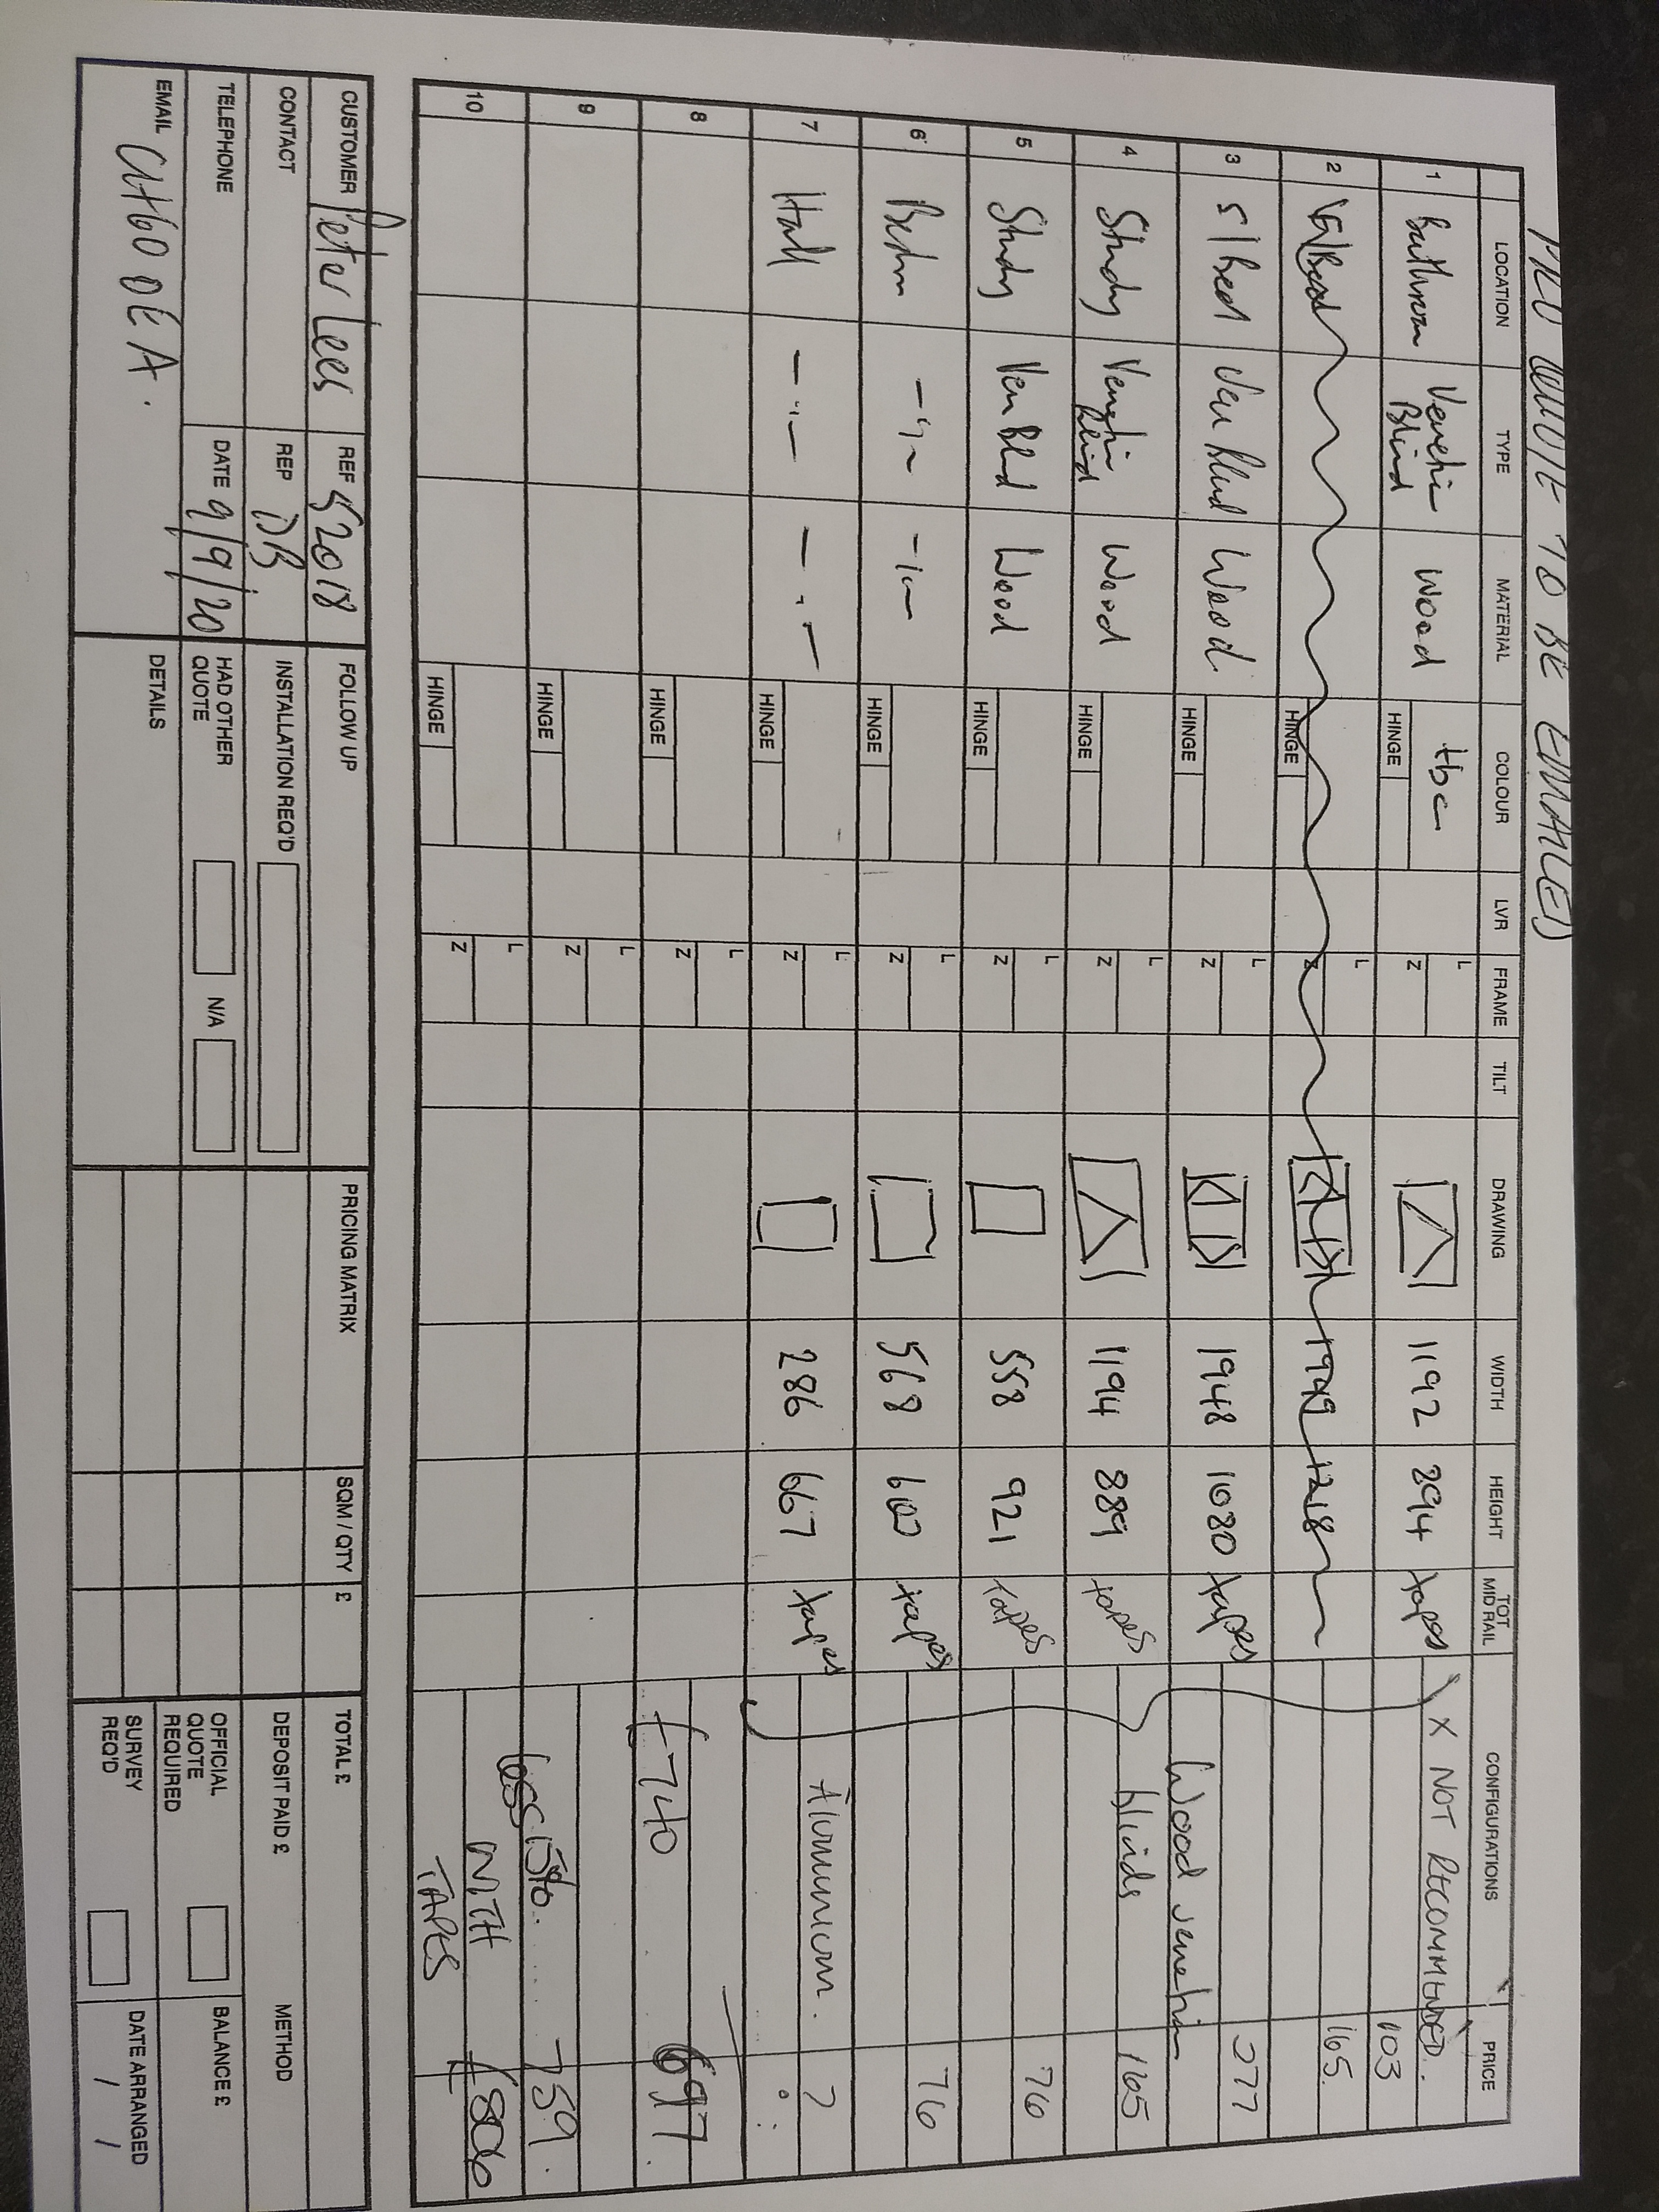 QUOTE TO BE EMAILED
LOCATION TYPE MATERIAL COLOUR LVR FRAME TILT DRAWING WIDTH HEIGHT TOT MID RAIL CONFIGURATIONS PRICE
1 Bathroom Venetian Blind Wood tbc HINGE L Z 1192 294 tapes X NOT RECOMMENDED. 103
2 S/Bed HINGE L Z 1949 1218 165.
3 S/Bed Ven Blind Wood HINGE L Z 1948 1080 tapes 277
Wood venetian
4 Study Venetian Blind Wood HINGE L Z 1194 889 tapes blinds 165
5 Study Ven Blnd Wood HINGE L Z 558 921 tapes 76
6 Bedrm —"— —"— HINGE L Z 568 600 tapes 76
7 Hall —"— —"— HINGE L Z 286 667 tapes Aluminium. ?
8 HINGE L Z £740 697.
9 HINGE L Z less 15%. 759.
10 HINGE L Z WITH TAPES £806
CUSTOMER Peter Lees REF S2018 FOLLOW UP PRICING MATRIX SQM / QTY £ TOTAL £
CONTACT REP DB INSTALLATION REQ'D DEPOSIT PAID £ METHOD
TELEPHONE DATE 9/9/20 HAD OTHER QUOTE N/A OFFICIAL QUOTE REQUIRED BALANCE £
EMAIL CH60 0EA. DETAILS SURVEY REQ'D DATE ARRANGED / /